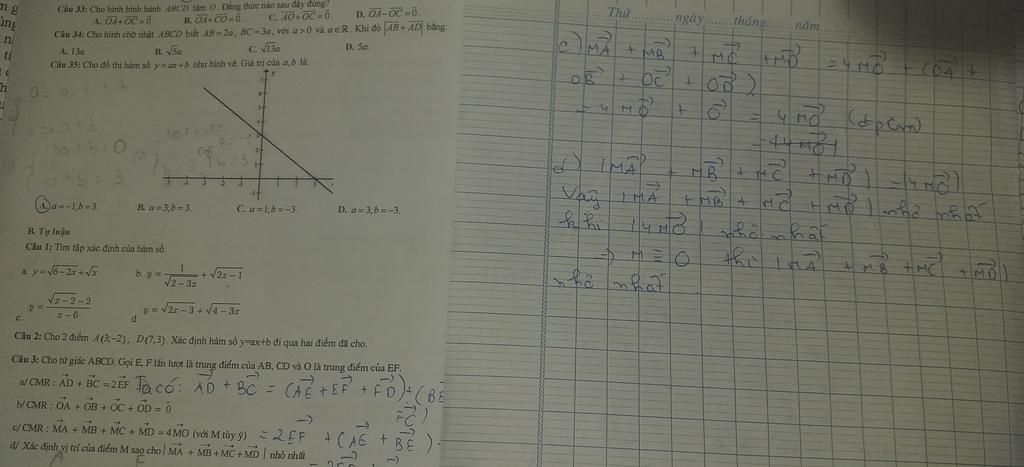 Câu 33: Cho hình bình hành ABCD tâm O. Đẳng thức nào sau đây đúng?
A. OA+OC=0. B. OA+CO=0. C. AO+OC=0. D. OA−OC=0.
Câu 34: Cho hình chữ nhật ABCD biết AB=2a, BC=3a, với a>0 và a∈R. Khi đó |AB+AD| bằng:
A. 13a. B. √5a. C. √13a. D. 5a.
Câu 35: Cho đồ thị hàm số y=ax+b như hình vẽ. Giá trị của a,b là:
A. a=−1;b=3. B. a=3;b=3. C. a=1;b=−3. D. a=3;b=−3.
B. Tự luận
Câu 1: Tìm tập xác định của hàm số:
a. y=√(6−2x)+√x b. y=1/√(2−3x)+√(2x−1)
c. y=(√(x−2)−2)/(x−6) d. y=√(2x−3)+√(4−3x)
Câu 2: Cho 2 điểm A(3;−2), D(7;3). Xác định hàm số y=ax+b đi qua hai điểm đã cho.
Câu 3: Cho tứ giác ABCD. Gọi E, F lần lượt là trung điểm của AB, CD và O là trung điểm của EF.
a/ CMR : AD + BC = 2EF Ta có: AD + BC = (AE + EF + FD) + (BE
FC)
b/ CMR : OA + OB + OC + OD = 0
c/ CMR : MA + MB + MC + MD = 4MO (với M tùy ý) = 2EF + (AE + BE)
d/ Xác định vị trí của điểm M sao cho | MA + MB+MC+MD | nhỏ nhất
Thứ ngày tháng năm
c) MA + MB + MC + MD = 4MO + (OA +
OB + OC + OD)
= 4MO + O = 4MO (đpcm)
d) |MA + MB + MC + MD| = |4MO|
Vậy |MA + MB + MC + MD| nhỏ nhất
khi |4MO| nhỏ nhất
⇒ M ≡ O thì |MA + MB + MC + MD|
nhỏ nhất